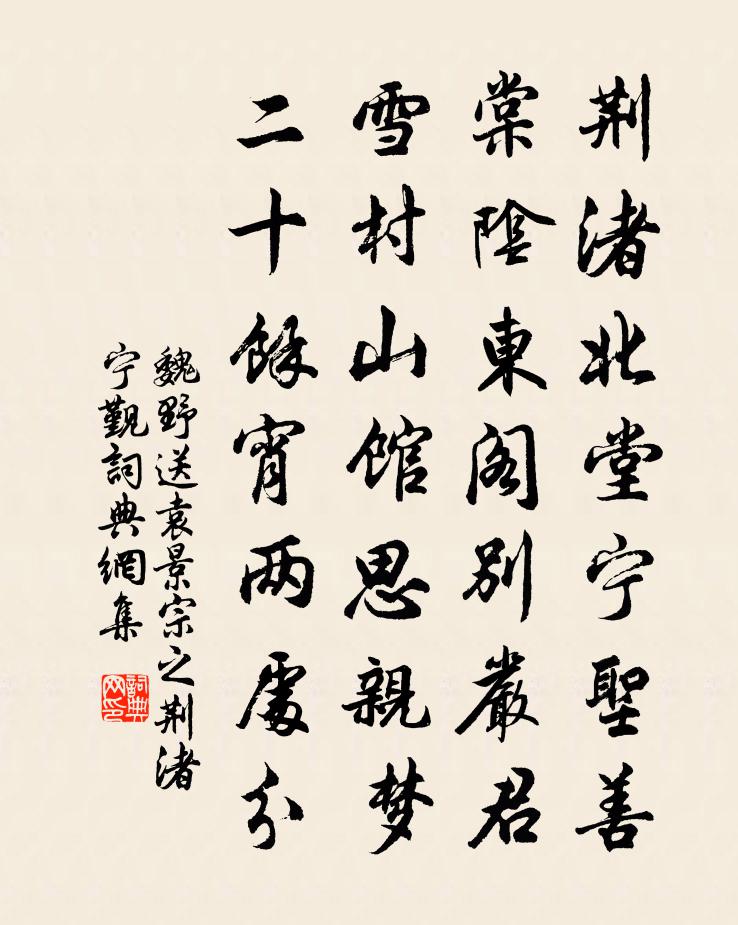 荆渚北堂宁聖善
棠陰東阁别嚴君
雪村山館思親梦
二十餘宵两處分
魏野送袁景宗之荆渚
宁觐詞典網集
詞典
网印